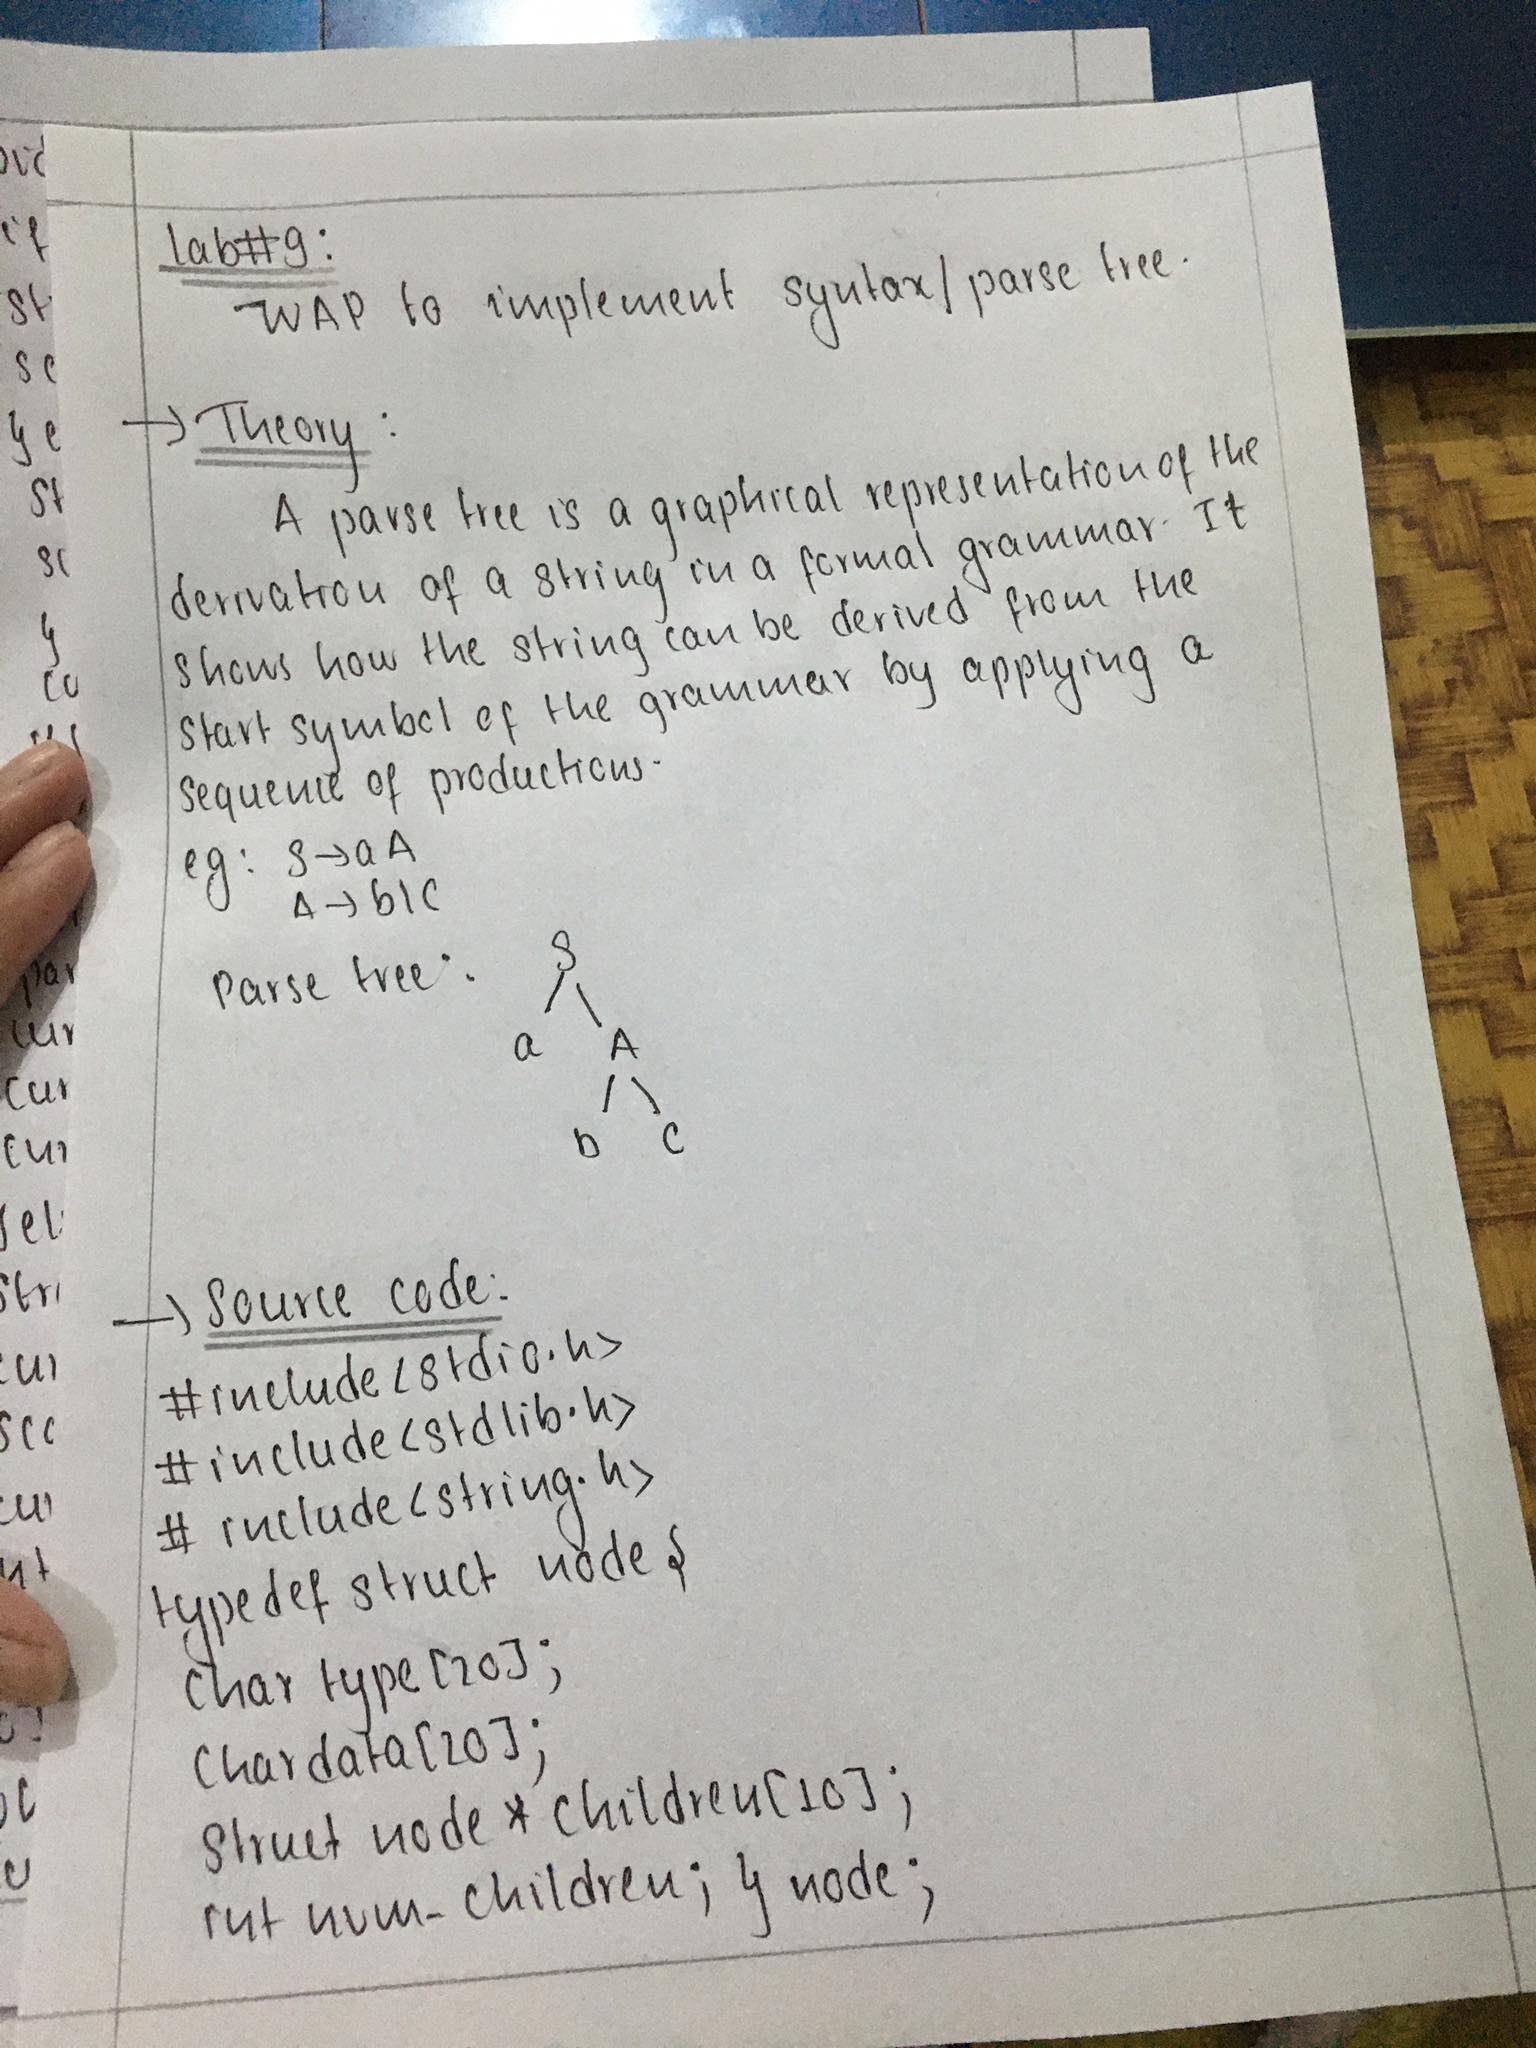 Lab#9:
WAP to implement syntax/parse tree.
→ Theory:
A parse tree is a graphical representation of the
derivation of a string in a formal grammar. It
shows how the string can be derived from the
start symbol of the grammar by applying a
sequence of productions.
eg: S→aA
A→b|C
Parse tree:
S
a A
b C
→ Source code:
#include<stdio.h>
#include<stdlib.h>
# include<string.h>
typedef struct node {
char type[20];
Char data[20];
Struct node * children[10];
int num_children; } node;